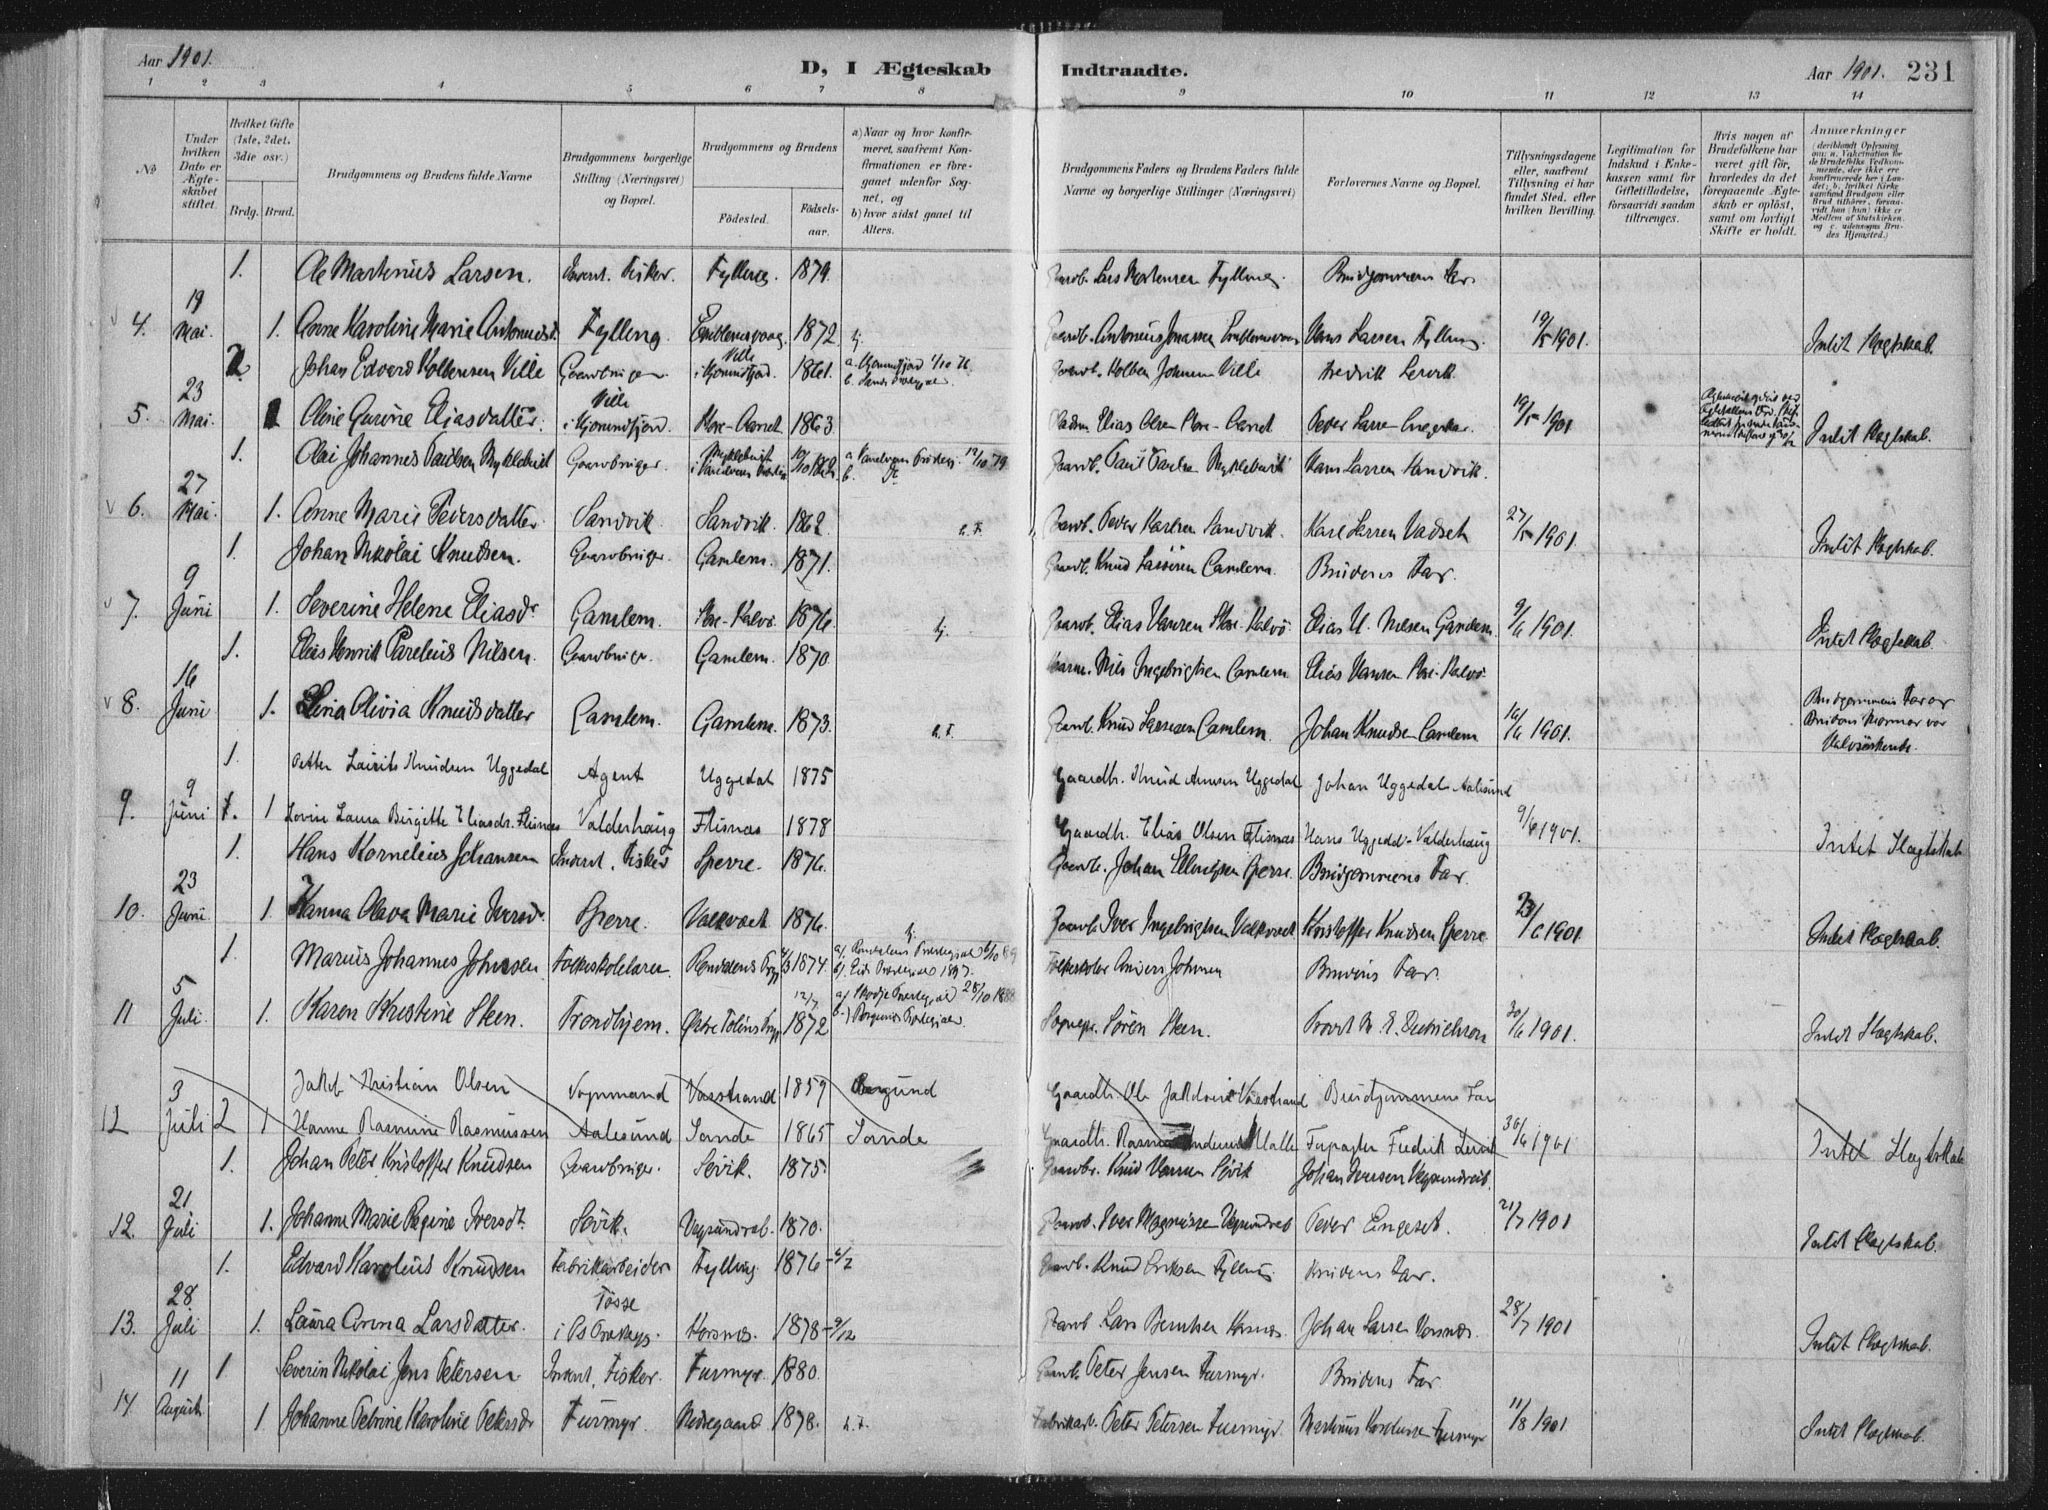 Aar 1901.
D, I Ægteskab Indtraadte.
Aar 1901. 231
1 2 3 4 5 6 7 8 9 10 11 12 13 14
No
Under hvilken Dato er Ægteskabet stiftet.
Hvilket Gifte (1ste, 2det, 3die osv.)
Brdg. Brud.
Brudgommens og Brudens fulde Navne
Brudgommens borgerlige Stilling (Næringsvei) og Bopæl.
Brudgommens og Brudens
Fødested. Fødselsaar.
a) Naar og hvor konfirmeret, saafremt Konfirmationen er foregaaet udenfor Sognet, og
b) hvor sidst gaaet til Alters.
Brudgommens Faders og Brudens Faders fulde Navne og borgerlige Stillinger (Næringsvei)
Forlovernes Navne og Bopæl.
Tillysningsdagene eller, saafremt Tillysning ei har fundet Sted, efter hvilken Bevilling.
Legitimation for Indskud i Enkekassen samt for Giftetilladelse, forsaavidt saadan tiltrænges.
Hvis nogen af Brudefolkene har været gift før, hvorledes da det foregaaende Ægteskab er opløst, samt om lovligt Skifte er holdt.
Anmærkninger (deriblandt Oplysning om: a. Vakcination for de Brudefolks Vedkommende, der ikke ere konfirmerede her i Landet; b. hvilket Kirkesamfund Brudgom eller Brud tilhører, forsaavidt han (hun) ikke er Medlem af Statskirken, og c. udensogns Brudes Hjemsted.)
1. Ole Martinus Larsen. Inderst. Fisker. Fylling 1879. Gaardb. Lars Mortensen Fylling. Brudgommens Far
4. 19 Mai 1. Anne Karoline Marie Antonusd. Fylling. Emblemsvaag. 1872. Gaardb. Antonius Jonassen Emblemsvaag Hans Larsen Fylling. 19/5 1901. Intet Slægtskab.
2 Johan Edvard Kolbensen Ville Gaardbruger Ville i Hjørundfjord. 1861. Gaardb. Kolben Johnsen Ville Fredrik Lervik.
5. 23 Mai. 1 Oline Gurine Eliasdatter. Ville i Hjørundfjord. Store-Aarset 1863. Elias Olsen Store-Aarset Peder Larsen 19/5 1901 Intet Slægtskab.
1. Olai Johannes Paulsen Myklebust Gaardbruger. Myklebust i Vanelvens 10/10 Gaardb. Paul Paulsen Myklebust Hans Larsen Sandvik.
6. 27 Mai. 1. Anne Marie Pedersdatter Sandvik Sandvik. 1862. Gaardb. Peder Karlsen Sandvik. Karl Larsen Vadset 27/5 1901. Intet Slægtskab.
1. Johan Nikolai Knudsen. Gaardbruger Gamlem. 1871. Gaardb. Knud Lassesen Gamlem. Brudens Far.
7. 9 Juni 1. Severine Helene Eliasdr Gamlem. Store-Kalvø 1876. Gaardb. Elias Hansen Store-Kalvø Elias H. Nilsen Gamlem. 9/6 1901. Intet Slægtskab.
1. Elias Henrik Parelius Nilsen. Gaardbruger. Gamlem. 1870. Nils Ingebrigtsen Gamlem Elias Hansen Store-Kalvø
8. 16 Juni 1. Elina Olivia Knudsdatter Gamlem. Gamlem. 1873. Gaardb. Knud Lassesen Gamlem. Johan Knudsen Gamlem 16/6 1901. Brudgommens Far og Brudens Mormor var Halvsøskende.
1. Petter Laurits Knudsen Uggedal Agent Uggedal 1875 Gaardbr. Knud Arnesen Uggedal Johan Uggedal Aalesund
9. 9 Juni 1. 1 Lovise Laura Birgitte Eliasdr. Flisnæs Valderhaug Flisnæs 1878 Gaardbr. Elias Olsen Flisnæs Hans Uggedal Valderhaug 9/6 1901. Intet Slægtskab
1. Hans Kornelius Johansen Inderst. Fisker Sperre. 1876. Gaardb. Johan Ellingsen Sperre. Brudgommens Far.
10. 23 Juni 1. Hanna Olava Marie Iversd. Sperre. Valkvæt 1876. Gaardb. Iver Ingebrigtsen Valkvæt Kristoffer Knudsen Sperre 23/6 1901. Intet Slægtskab.
1. Marius Johannes Johnsen Folkeskolelærer. 1874. Anders Johnsen Brudens Far.
11 5 Juli. 1. Karen Kristine Steen. Trondhjem. 12/7 1872 28/10 1888 Sognepr. Sören Steen. 30/6 1901. Intet Slægtskab.
Jakob Kristian Olsen Vognmand Vasstrand 1859 Borgund Gaardbr. Ole Jakobsen Vasstrand Brudgommens Far
12 3 Juli 2 1 Hanne Rasmine Rasmussen Aalesund Sande 1865 Sande Gaardbr. Fredrik Lervik 30/6 1901 Intet Slægtskab
1. Johan Peter Kristoffer Knudsen Gaardbruger. Søvik. 1875. Gaardbr. Knud Hansen Søvik Johan Iversen Vegsundreit.
12. 21 Juli 1. Johanne Marie Regine Iversdt. Søvik. Vegsundreit. 1870. Gaardb. Iver Magnussen Vegsundreit Peder Engeset. 21/7 1901 Intet Slægtskab.
1. Edvard Karolius Knudsen Fabrikarbeider Fylling 1876 4/2 Gaardb. Knud Eriksen Fylling Brudens Far.
13. 28 Juli 1. Laura Anna Larsdatter. Tøsse Korsnæs. 1878 9/12 Gaardb. Lars Berntsen Korsnæs. Johan Larsen Korsnæs. 28/7 1901 Intet Slægtskab.
1. Severin Nikolai Jens Petersen Inderst, Fisker. Furmyr. 1880. Gaardb. Peter Jensen Furmyr. Brudens Far.
14 11 August 1 Johanne Petrine Karoline Petersdr Furmyr. Nedregaard 1878. Fabrikarb. Peter Petersen Furmyr. Furmyr 11/8 1901 Intet Slægtskab.